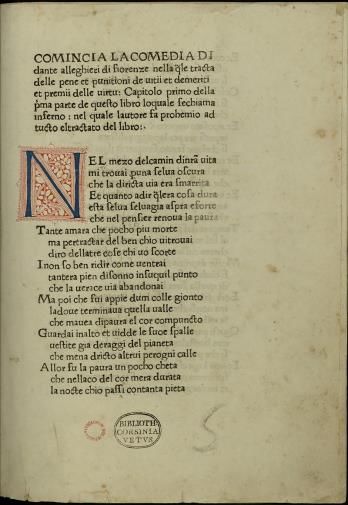 COMINCIA LACOMEDIA DI
dante alleghieri di fiorenze nella q̄le tracta
delle pene et punitioni de uitii et demeriti
et premii delle uirtu: Capitolo primo della
p̄ma parte de questo libro loquale sechiama
inferno: nel quale lautore fa prohemio ad
tucto eltractato del libro:·
NEL mezo delcamin dinr̄a uita
mi trouai puna selua oscura
che la diricta uia era smarrita
Et quanto adir q̄lera cosa dura
esta selua seluagia aspra eforte
che nel pensier renoua la paura
Tante amara che pocho piu morte
ma pertractar del ben chio uitrouai
diro dellatre cose chi uo scorte
I non so ben ridir come uentrai
tantera pien disonno insuquil punto
che la uerace uia abandonai
Ma poi che fui appie dum colle gionto
ladoue terminaua quella ualle
che mauea dipaura el cor compuncto
Guardai inalto et uidde le suoe spalle
uestite gia deraggi del pianeta
che mena dricto altrui perogni calle
Allor fu la paura un pocho cheta
che nellaco del cor mera durata
la nocte chio passi contanta pieta
BIBLIOTH.
CORSINIA
VETVS.